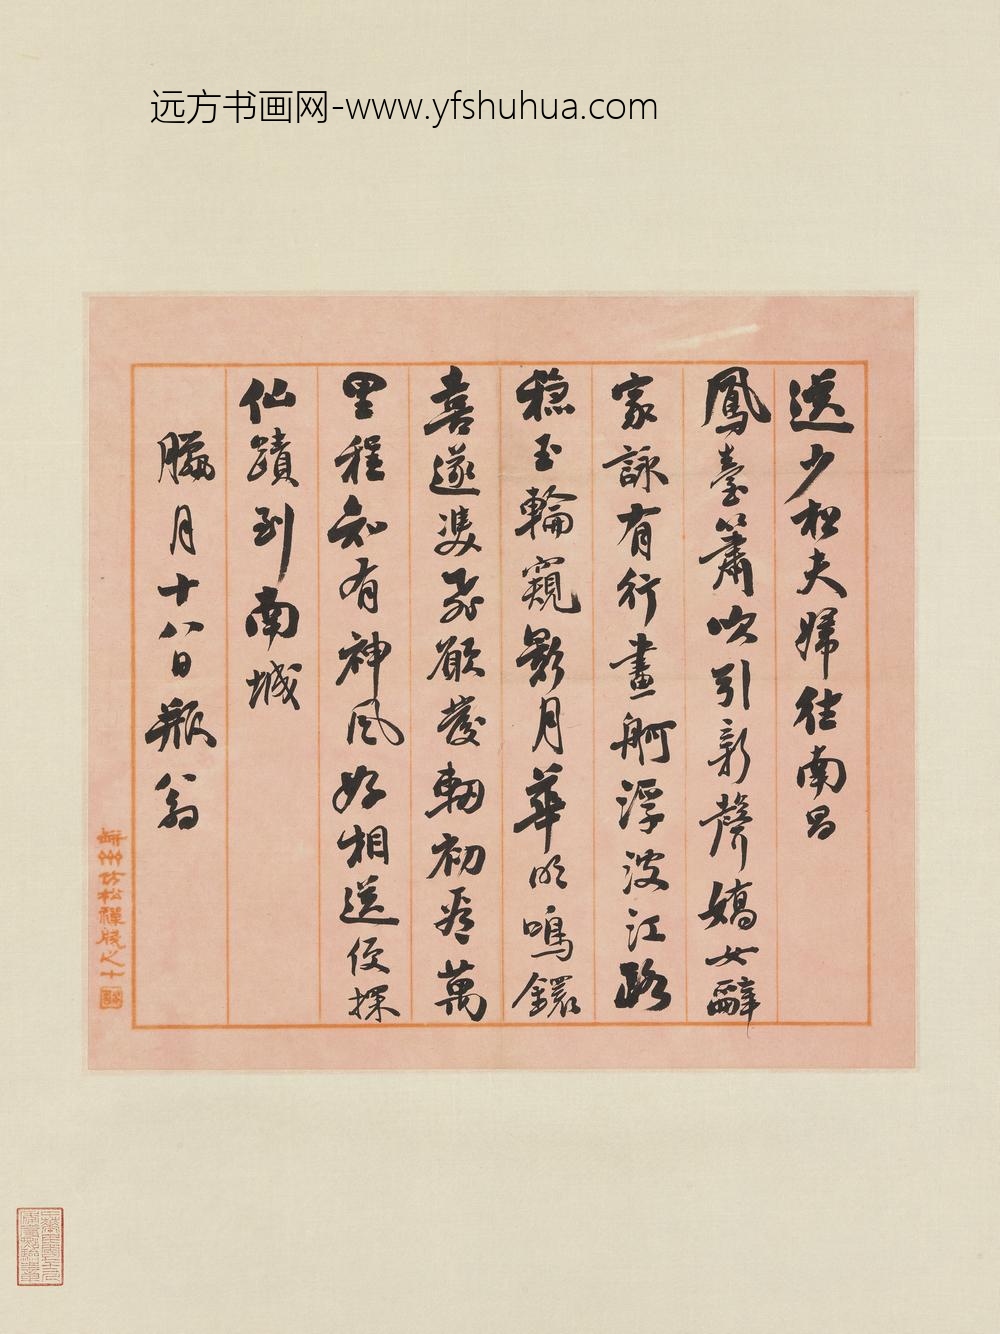 远方书画网-www.yfshuhua.com
送少松夫婦往南昌
鳳臺簫吹引新聲嬌女辭
家詠有行畫舸浮波江路
穩玉輪窺影月華明鳴鑼
喜遂雙飛願發軔初看萬
里程知有神風好相送便探
仙蹟到南城
臘月十八日瓶翁
缾翁仿松禪版之十